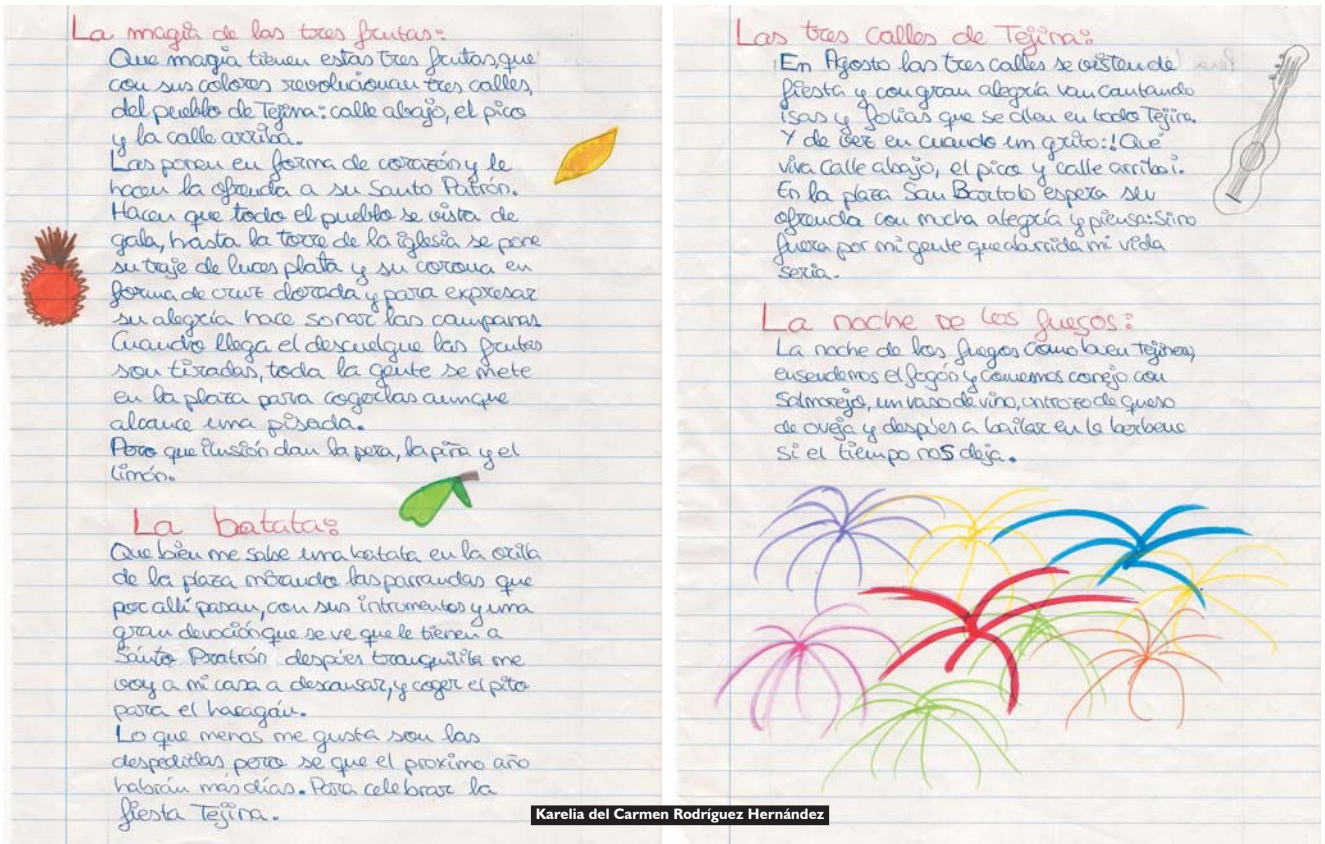 La magia de las tres frutas:
Que magia tienen estas tres frutas, que
con sus colores revolucionan tres calles,
del pueblo de Tejina: calle abajo, el pico
y la calle arriba.
Las ponen en forma de corazón y le
hacen la ofrenda a su Santo Patrón.
Hacen que todo el pueblo se vista de
gala, hasta la torre de la iglesia se pone
su traje de luces plata y su corona en
forma de cruz dorada y para expresar
su alegría hace sonar las campanas
Cuando llega el descuelgue las frutas
son tiradas, toda la gente se mete
en la plaza para cogerlas aunque
alcance una pisada.
Pero que ilusión dan la pera, la piña y el
limón.
La batata:
Que bien me sabe una batata en la orilla
de la plaza mirando las parrandas que
por allí pasan, con sus intrumentos y una
gran devoción que se ve que le tienen a
Santo Pratrón despúes tranquilita me
voy a mi casa a descansar, y coger el pito
para el haragán.
Lo que menos me gusta son las
despedidas pero se que el proximo año
habrán más días. Para celebrar la
fiesta Tejina.
Las tres calles de Tejina:
En Agosto las tres calles se visten de
fiesta y con gran alegría van cantando
isas y folias que se olleu en todo Tejina.
Y de vez en cuando un grito: ¡Que
viva calle abajo, el pico y calle arriba!.
En la plaza San Bartolo espera su
ofrenda con mucha alegría y piensa: Sino
fuera por mi gente que aburrida mi vida
seria.
La noche de los fuegos:
La noche de los fuegos como buen Tejinero,
ensendemos el fogón y comemos conejo con
Salmorejo, un vaso de vino, untrozo de queso
de oveja y despúes a bailar en la berbena
si el tiempo nos deja.
Karelia del Carmen Rodríguez Hernández